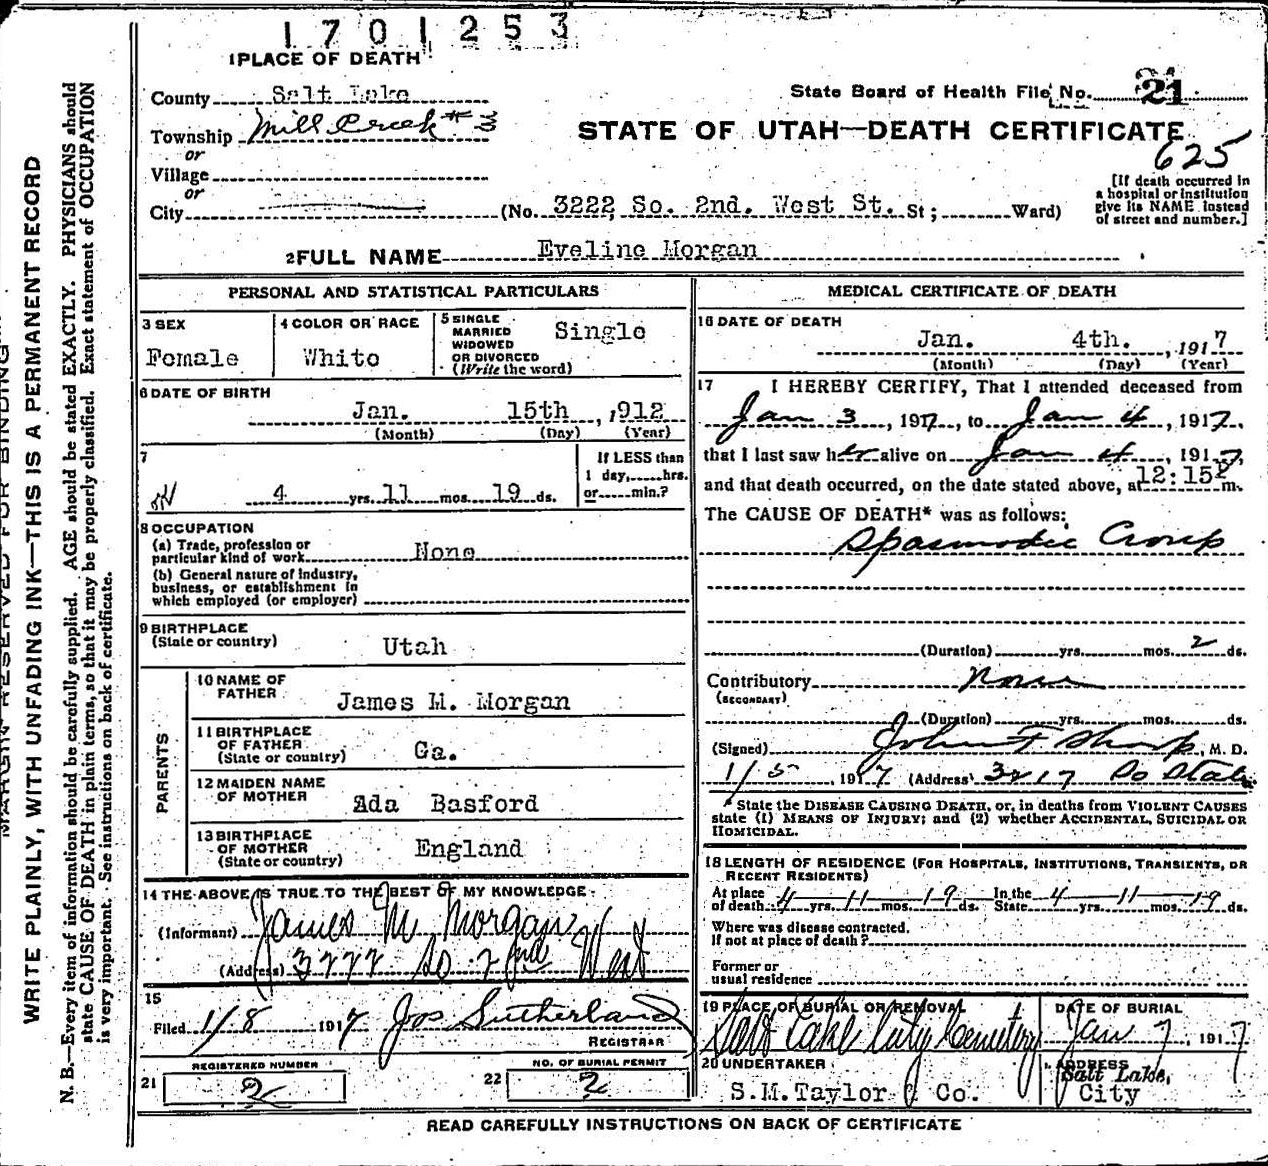 1701253
1 PLACE OF DEATH
County Salt Lake
State Board of Health File No. 21
Township Mill Creek #3
STATE OF UTAH—DEATH CERTIFICATE
625
or
Village
or
City (No. 3222 So. 2nd. West St. St; Ward)
[If death occurred in
a hospital or institution
give its NAME instead
of street and number.]
2 FULL NAME Eveline Morgan
PERSONAL AND STATISTICAL PARTICULARS
3 SEX
Female
4 COLOR OR RACE
White
5 SINGLE
MARRIED
WIDOWED
OR DIVORCED
(Write the word)
Single
6 DATE OF BIRTH
Jan. 15th ,912
(Month) (Day) (Year)
7
4 yrs. 11 mos. 19 ds.
If LESS than
1 day, hrs.
or min.?
8 OCCUPATION
(a) Trade, profession or
particular kind of work None
(b) General nature of industry,
business, or establishment in
which employed (or employer)
9 BIRTHPLACE
(State or country) Utah
PARENTS
10 NAME OF
FATHER James M. Morgan
11 BIRTHPLACE
OF FATHER
(State or country) Ga.
12 MAIDEN NAME
OF MOTHER Ada Basford
13 BIRTHPLACE
OF MOTHER
(State or country) England
14 THE ABOVE IS TRUE TO THE BEST OF MY KNOWLEDGE
(Informant) James M Morgan
(Address) 3222 So 2nd West
15
Filed 1/8 1917 Jos Sutherland
REGISTRAR
REGISTERED NUMBER
21 2
NO. OF BURIAL PERMIT
22 2
MEDICAL CERTIFICATE OF DEATH
16 DATE OF DEATH
Jan. 4th. , 1917
(Month) (Day) (Year)
17 I HEREBY CERTIFY, That I attended deceased from
Jan 3, 1917, to Jan 4, 1917,
that I last saw her alive on Jan 4, 1917,
and that death occurred, on the date stated above, at 12:15 P m.
The CAUSE OF DEATH* was as follows:
Spasmodic Croup
(Duration) yrs. mos. 2 ds.
Contributory None
(SECONDARY)
(Duration) yrs. mos. ds.
(Signed) John F Sharp, M. D.
1/5, 1917 (Address) 3217 So State
* State the DISEASE CAUSING DEATH, or, in deaths from VIOLENT CAUSES
state (1) MEANS OF INJURY; and (2) whether ACCIDENTAL, SUICIDAL OR
HOMICIDAL.
18 LENGTH OF RESIDENCE (FOR HOSPITALS, INSTITUTIONS, TRANSIENTS, OR
RECENT RESIDENTS)
At place
of death 4 yrs. 11 mos. 19 ds. In the
State 4 yrs. 11 mos. 19 ds.
Where was disease contracted.
If not at place of death?
Former or
usual residence
19 PLACE OF BURIAL OR REMOVAL
Salt Lake City Cemetery
DATE OF BURIAL
Jan 7, 1917
20 UNDERTAKER
S.M. Taylor & Co.
ADDRESS
Salt Lake,
City
READ CAREFULLY INSTRUCTIONS ON BACK OF CERTIFICATE
MARGIN RESERVED FOR BINDING
WRITE PLAINLY, WITH UNFADING INK—THIS IS A PERMANENT RECORD
N. B.—Every item of information should be carefully supplied. AGE should be stated EXACTLY. PHYSICIANS should
state CAUSE OF DEATH in plain terms, so that it may be properly classified. Exact statement of OCCUPATION
is very important. See instructions on back of certificate.